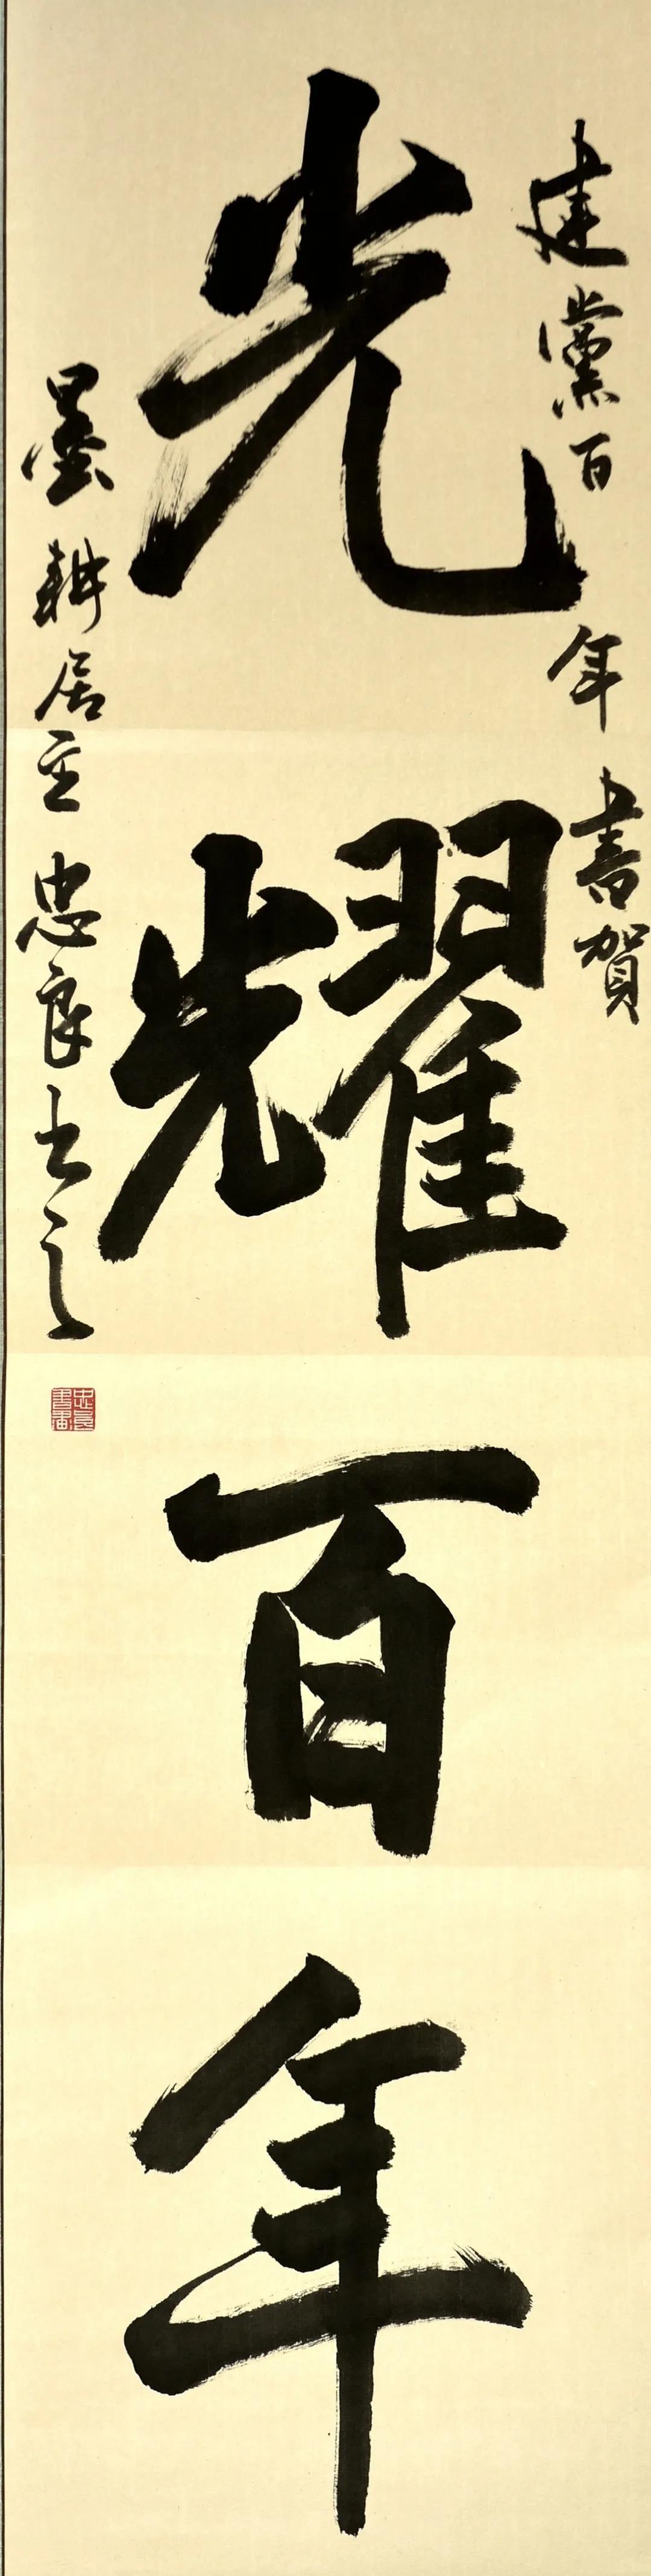 建黨百年書賀
光耀百年
墨耕居主忠良书之
忠良書畫